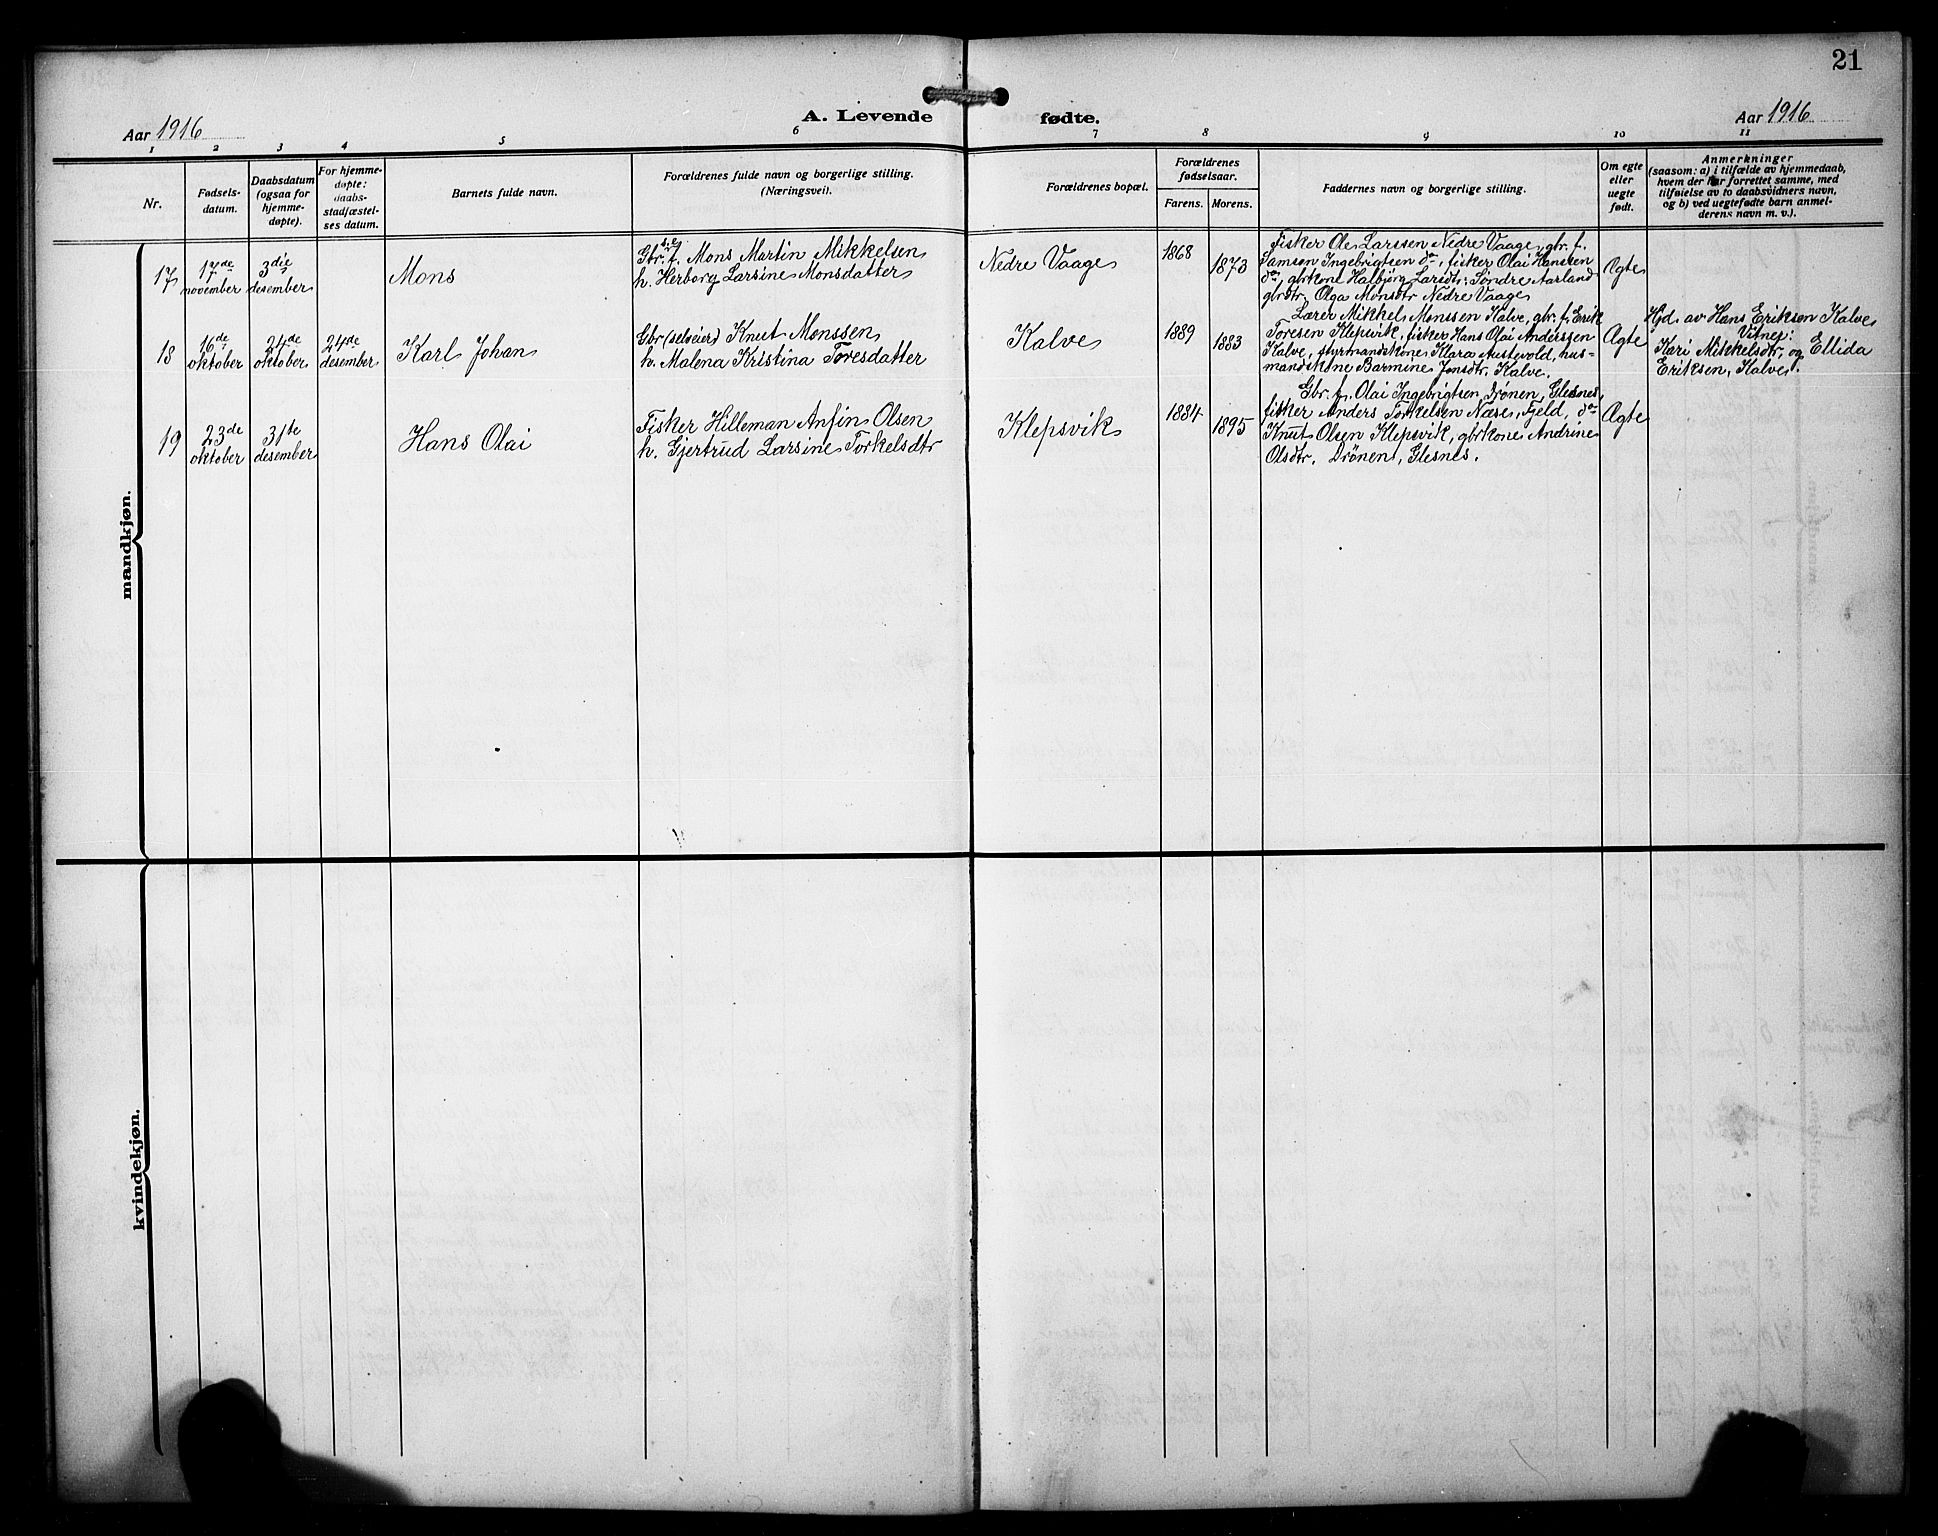 21
Aar 1916
A. Levende fødte.
Aar 1916
1 2 3 4 5 6 7 8 9 10 11
Nr.
Fødsels-
datum.
Daabsdatum
(ogsaa for
hjemme-
døpte).
For hjemme-
døpte:
daabs-
stadfæstel-
ses datum.
Barnets fulde navn.
Forældrenes fulde navn og borgerlige stilling.
(Næringsvei).
Forældrenes bopæl.
Forældrenes
fødselsaar.
Farens. Morens.
Faddernes navn og borgerlige stilling.
Om egte
eller
uegte
født.
Anmerkninger
(saasom: a) i tilfælde av hjemmedaab,
hvem der har forrettet samme, med
tilføielse av to daabsvidners navn,
og b) ved uegtefødte barn anmel-
derens navn m. v.).
mandkjøn.
17
17de
november
3die
desember
Mons
Gbr. f. Mons Martin Mikkelsen
h. Herborg Larsine Monsdatter
Nedre Vaage
1868
1873
Fisker Ole Larssen Nedre Vaage, gbr. f.
Samson Ingebrigtsen do, fisker Olai Hanssen
do, gbrkone Halbjørg Larsdtr. Søndre Aarland
gbrdtr. Olga Monsdtr Nedre Vaage
Ægte
18
16de
oktober
24de
oktober
24de
desember
Karl Johan
Gbr (selveier) Knut Monssen
h. Malena Kristina Toresdatter
Kalve
1889
1883
Lærer Mikkel Monssen Kalve, gbr. f. Erik
Toresen Klepsvik, fisker Hans Olai Anderssen
Kalve, styrmandskone Klara Austevold, hus-
mandskone Barmine Jonsdtr. Kalve.
Ægte
Hjd. av Hans Eriksen Kalve
Vitner:
Kari Mikkelsdtr, og Ellida
Eriksen, Kalve.
19
23de
oktober
31te
desember
Hans Olai
Fisker Hilleman Anfin Olsen
h. Gjertrud Larsine Torkelsdtr
Klepsvik
1884
1895
Gbr. f. Olai Ingebrigtsen Drønen, Glesnes,
fisker Anders Torkelsen Næse, Fjeld, do
Knut Olsen Klepsvik, gbrkone Andrine
Olsdtr. Drønen, Glesnes.
Ægte
kvindekjøn.